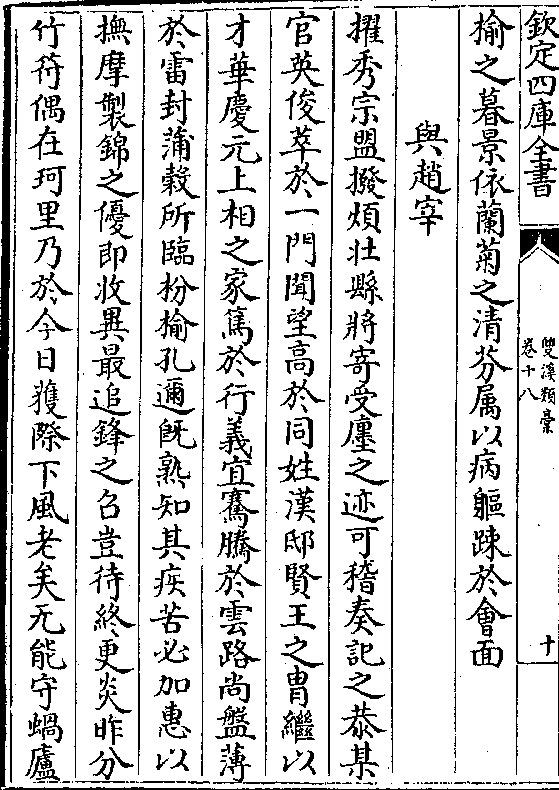 欽定四庫全書
雙溪類藁
卷十八
十
揄之暮景依蘭菊之清芬属以病軀踈於會面
與趙宰
擢秀宗盟撥煩壮縣將寄受廛之迹可稽奏記之恭某
官英俊萃於一門聞望高於同姓漢邸賢王之胄繼以
才華慶元上相之家篤於行義宜騫騰於雲路尚盤薄
於雷封蒲穀所臨枌榆孔邇既熟知其疾苦必加惠以
撫摩製錦之優即收異最追鋒之召豈待終更炎昨分
竹符偶在珂里乃於今日獲際下風老矣无能守蝸廬